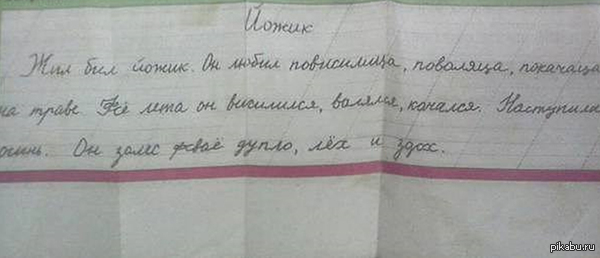 Йожик
Жил бил йожик. Он любил повисилица, поволяца, покачаца
на траве. Фсё лета он висилился, валялся, качался. Наступила
осинь. Он залес фсваё дупло, лёх и здох.
pikabu.ru